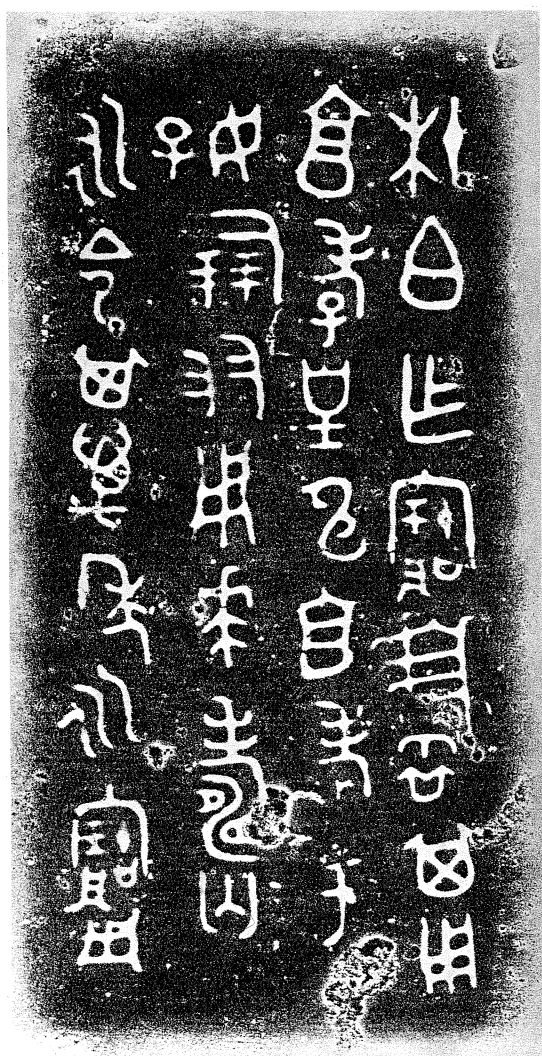 杜白乍寶盨其用
亯孝皇申且考于
好倗友用𠦪壽匄
永令其萬年永寶用